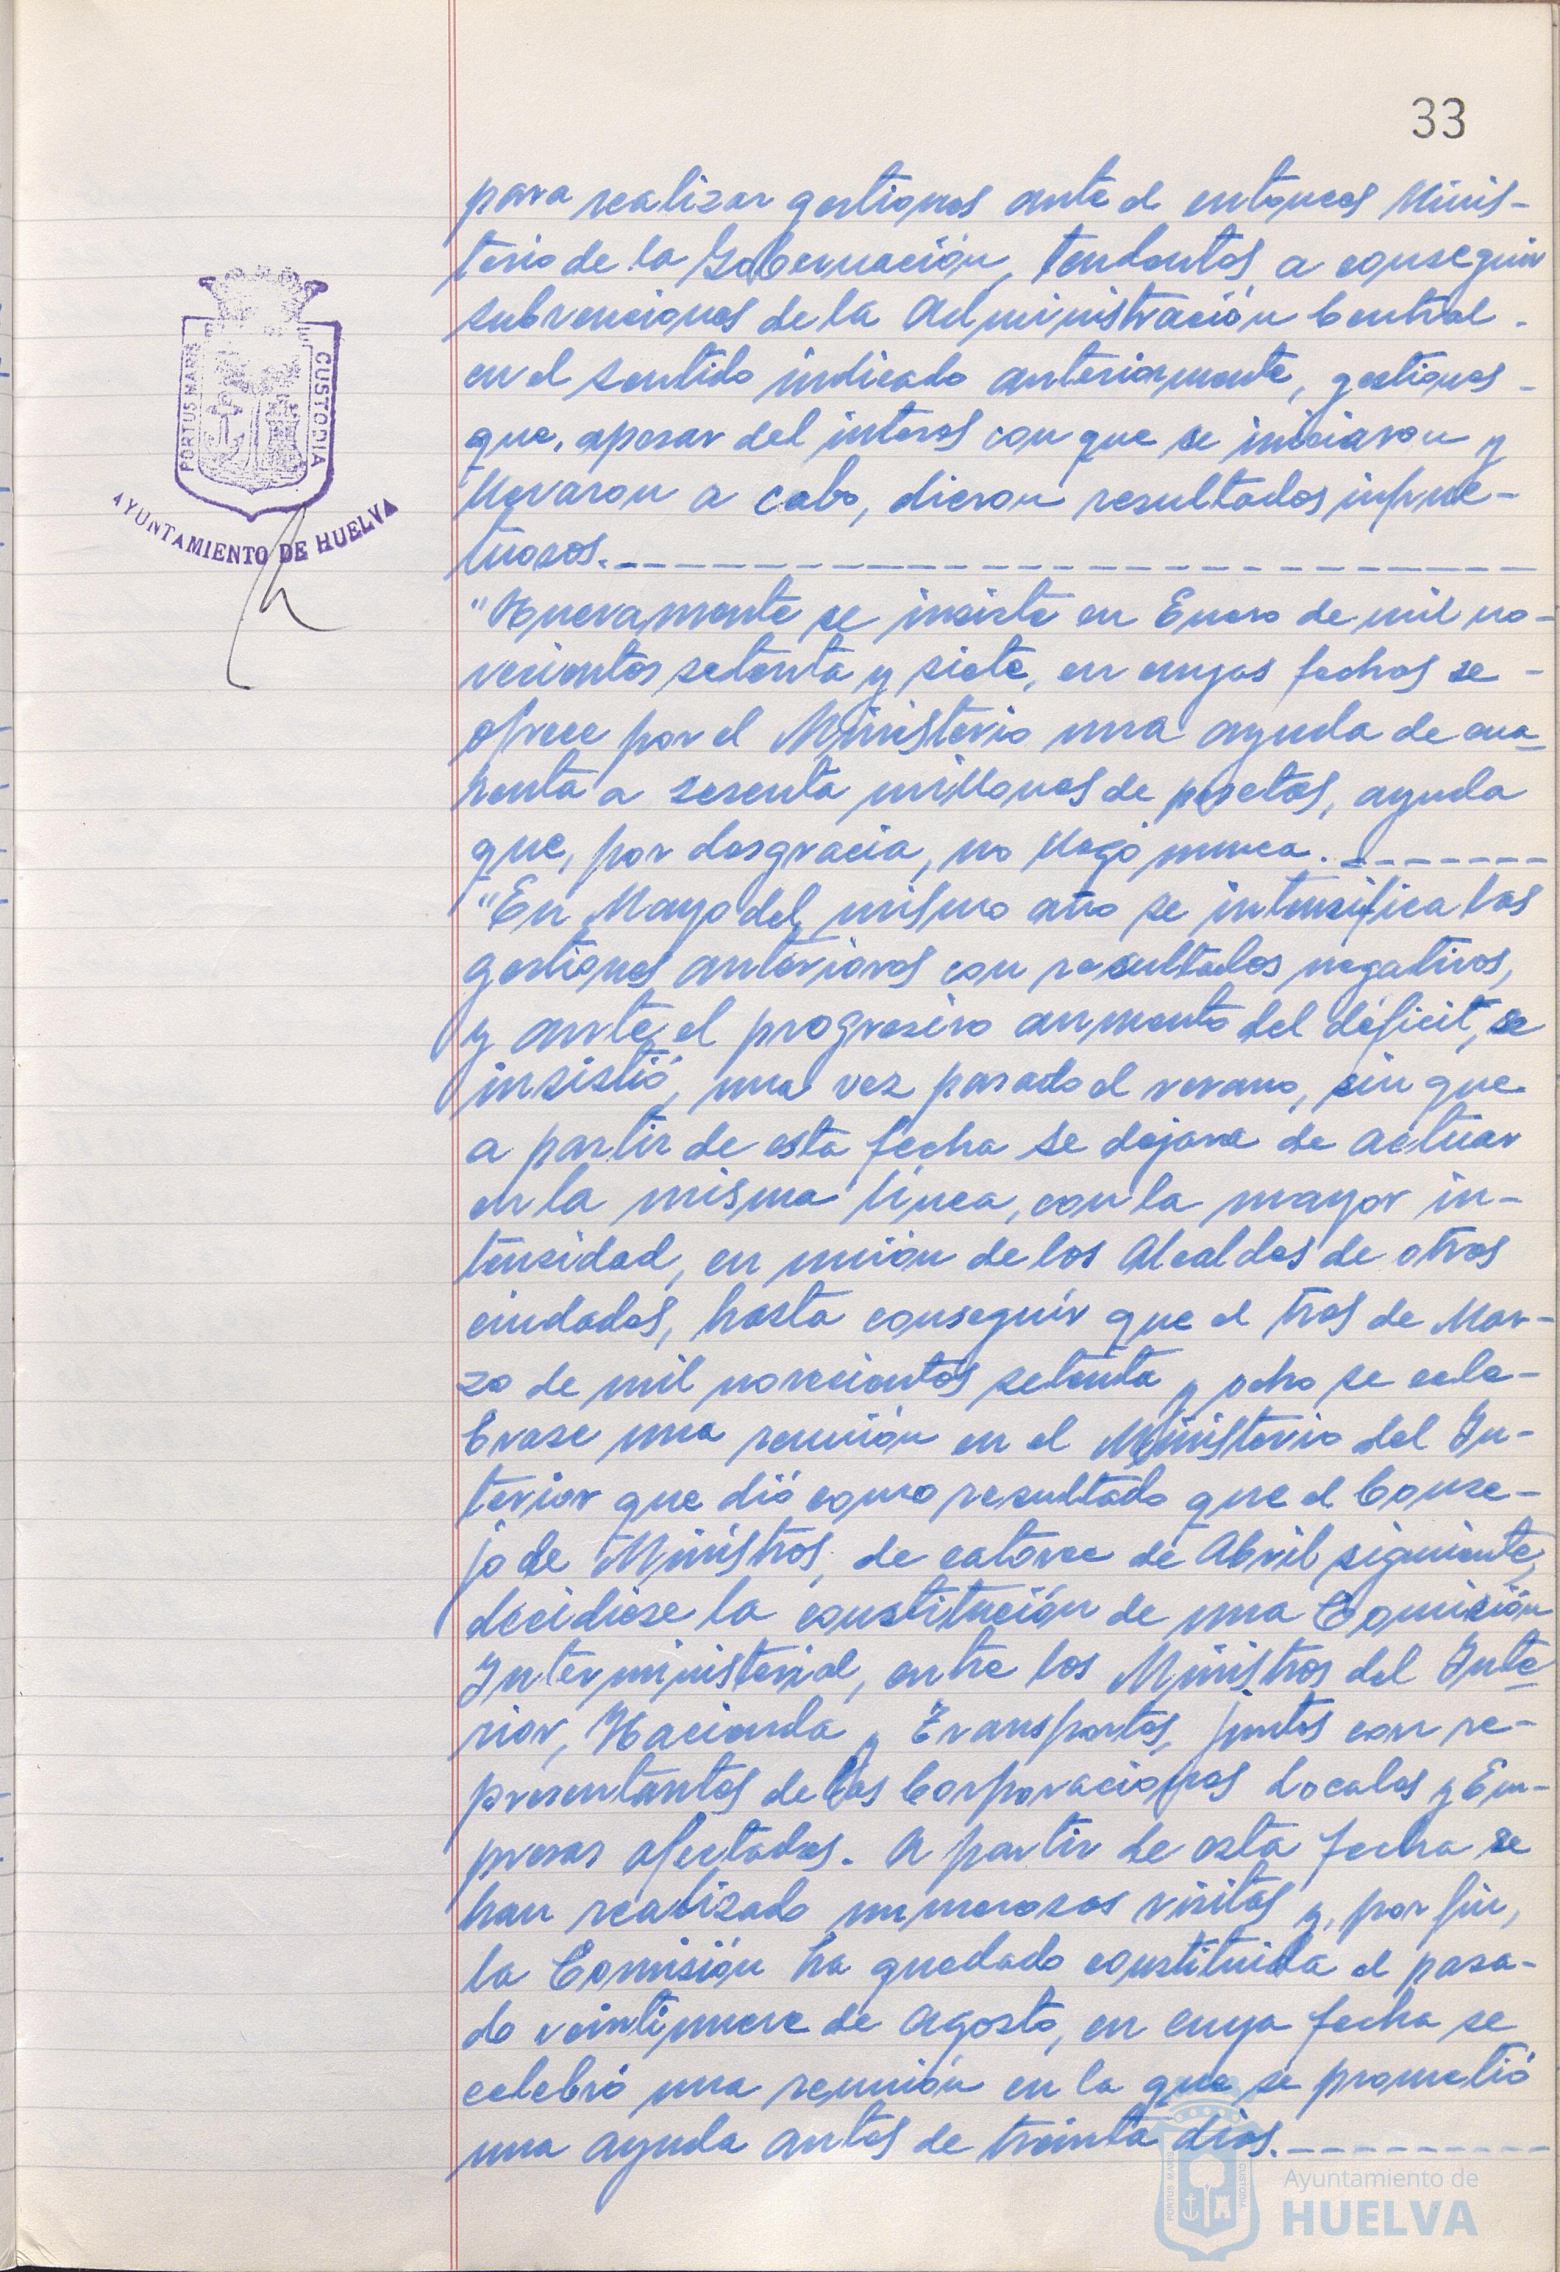 33
para realizar gestiones ante el entonces Minis-
terio de la Gobernación, tendentes a conseguir
subvenciones de la Administración Central -
en el sentido indicado anteriormente, gestiones -
que, apesar del interes con que se iniciaron y
llevaron a cabo, dieron resultados infruc-
tuosos.
"Nuevamente se insiste en Enero de mil no-
vecientos setenta y siete, en cuyas fechas se -
ofrece por el Ministerio una ayuda de cua-
renta a sesenta millones de pesetas, ayuda
que, por desgracia, no llegó nunca.
"En Mayo del mismo año se intensifica las
gestiones anteriores con resultados negativos,
y ante el progresivo aumento del déficit, se
insistió, una vez pasado el verano, sin que
a partir de esta fecha se dejara de actuar
en la misma línea, con la mayor in-
tensidad, en unión de los Alcaldes de otras
ciudades, hasta conseguir que el tres de Mar-
zo de mil novecientos setenta y ocho se cele-
brase una reunión en el Ministerio del In-
terior que dió como resultado que el Conse-
jo de Ministros, de catorce de Abril siguiente,
decidiese la constitución de una Comisión
Interministerial, entre los Ministros del Inte-
rior, Hacienda y Transportes, juntos con re-
presentantes de las Corporaciones Locales y Em-
presas afectadas. A partir de esta fecha se
han realizado numerosas visitas y, por fin,
la Comisión ha quedado constituida el pasa-
do veintinueve de Agosto, en cuya fecha se
celebró una reunión en la que se prometió
una ayuda antes de treinta días.
PORTUS MARIS
CUSTODIA
AYUNTAMIENTO DE HUELVA
PORTUS MARIS
CUSTODIA
Ayuntamiento de
HUELVA